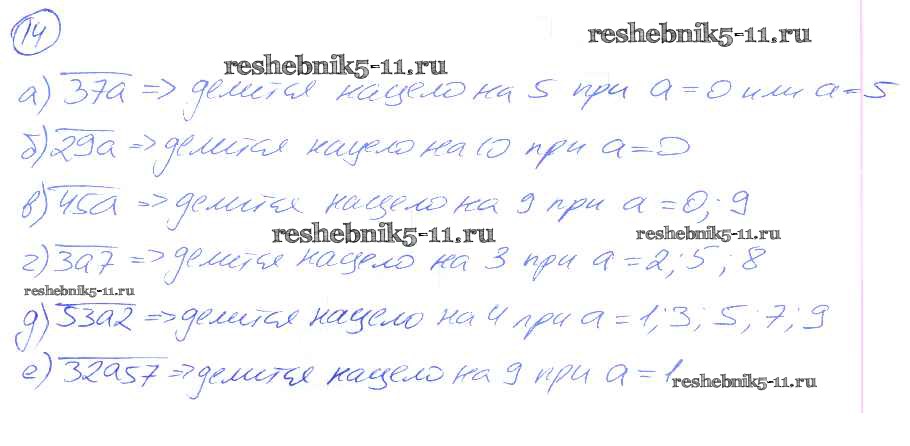 14
reshebnik5-11.ru
reshebnik5-11.ru
а) 37а => делится нацело на 5 при а = 0 или а = 5
б) 29а => делится нацело на 10 при а = 0
в) 45а => делится нацело на 9 при а = 0; 9
reshebnik5-11.ru
reshebnik5-11.ru
г) 3а7 => делится нацело на 3 при а = 2; 5; 8
reshebnik5-11.ru
д) 53а2 => делится нацело на 4 при а = 1; 3; 5; 7; 9
е) 32а57 => делится нацело на 9 при а = 1
reshebnik5-11.ru